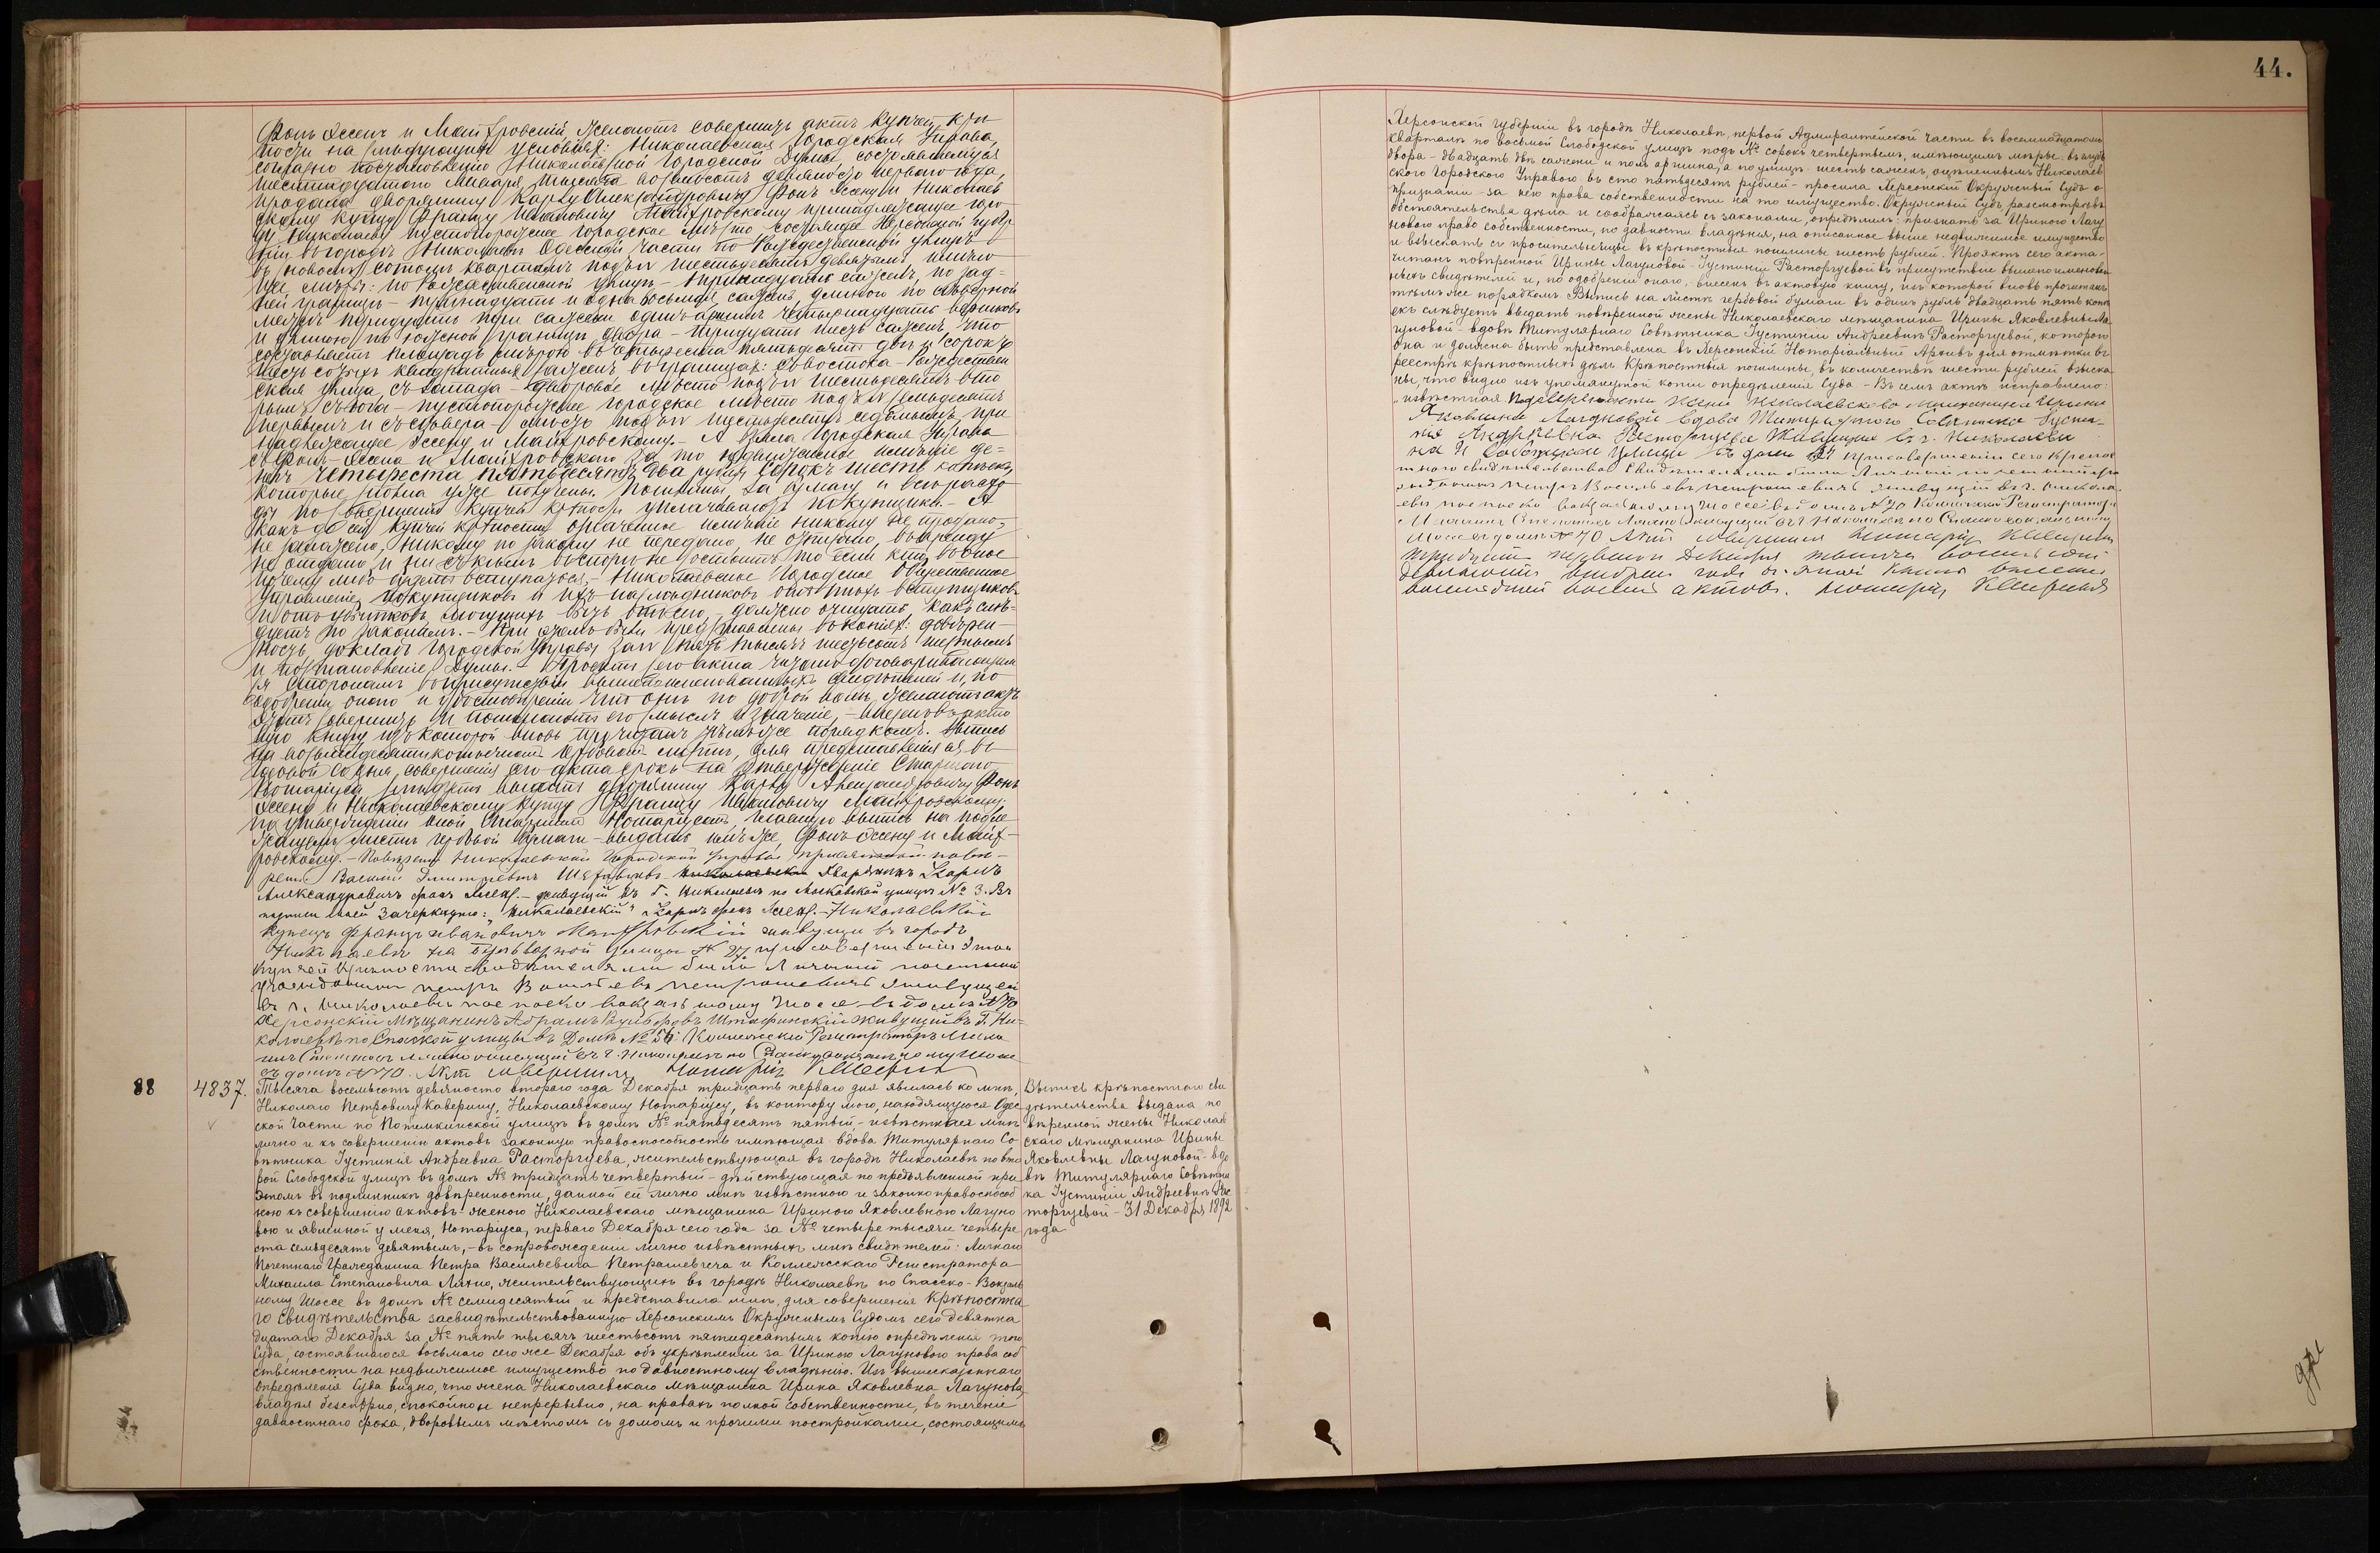 44.
Фонъ Эссенъ и Майфровскій, желаютъ совершить актъ купчей крѣ
пости на слѣдующихъ условіяхъ: Николаевская Городская Управа,
согласно постановленію Николаевской Городской Думы, состоявшемуся
шестнадцатого Января тысяча восемьсотъ девяносто перваго года,
продала дворянину Карлу Александровичу Фонъ Эссену и Николаев
скому купцу Францу Ивановичу Майфровскому принадлежащее горо
ду Николаеву пустопорожнее городское мѣсто состоящее Херсонской губер
ніи въ городѣ Николаевѣ Одесской части по Рождественской улицѣ
въ кварталѣ подъ № шестьдесятъ девятымъ, имѣю
щее мѣры: по Рождественской улицѣ - тринадцать саженъ, по зад-
ней границѣ - тринадцать и одна восьмая саженъ, длиною по сѣверной
межѣ тридцать три сажени одинъ аршинъ четырнадцать вершковъ
и длиною по южной границѣ двора - тридцать шесть саженъ, что
составляетъ площадь мѣрою въ четыреста пятьдесятъ двѣ и сорокъ
шесть сотыхъ квадратныхъ саженъ въ границахъ: съ востока - Рождествен
ская улица, съ запада - дворовое мѣсто подъ № шестьдесятъ вто
рымъ, съ юга - пустопорожнее городское мѣсто подъ № семьдесятъ
первымъ и съ сѣвера - мѣсто подъ № шестьдесятъ седьмымъ при
надлежащее Эссену и Майфровскому. - А взяла Городская Управа
съ Фонъ-Эссена и Майфровского за то недвижимое имѣніе де-
негъ четыреста пятьдесятъ два рубля сорокъ шесть копѣекъ,
которые сполна уже получены. Пошлины, за бумагу и всѣ расхо
ды по совершенію купчей крѣпости уплачиваютъ покупщики. - А
какъ до сей купчей крѣпости означенное имѣніе никому не продано,
не заложено, никому по закону не передано, не описано, въ аренду
не отдано и ни съ кѣмъ въ спорѣ не состоитъ, то если кто въ оное
почему либо будетъ вступаться, - Николаевское Городское Общественное
Управленіе, покупщиковъ и ихъ наслѣдниковъ отъ тѣхъ вступщиковъ
и отъ убытковъ, могущихъ быть отъ сего, - должно очищать, какъ слѣ-
дуетъ по законамъ. - При семъ были представлены въ копіяхъ: довѣрен-
ность, докладъ Городской Управы за № пять тысячъ шестьсотъ
и постановленіе Думы. Проектъ сего акта читанъ договаривающим
ся сторонамъ въ присутствіи вышепоименованныхъ свидѣтелей и, по
одобреніи оного и удостовѣреніи что они по доброй волѣ, желаютъ актъ
этотъ совершить и понимаютъ его смыслъ и значеніе, - внесенъ въ акто
вую книгу изъ которой вновь прочитанъ тѣмъ же порядкомъ. Выпись
на восьмидесятикопѣечномъ гербовомъ листѣ, для представленія въ
годовой со дня совершенія сего акта срокъ на утвержденіе Старшаго
Нотаріуса, слѣдуетъ выдать дворянину Карлу Александровичу Фонъ
Эссену и Николаевскому купцу Францу Ивановичу Майфровскому;
по утвержденіи оной Старшимъ Нотаріусомъ, главную выпись на подле
жащемъ листѣ гербовой бумаги - выдать имъ же, Фонъ-Эссену и Майф-
ровскому. - Повѣренный Николаевской Городской Управы присяжный повѣ-
ренный Василій Дмитріевъ Николаевскій Дворянинъ Карлъ
Александровичъ фонъ Эссенъ. - живущій въ г. Николаевѣ по Московской улицѣ № 3. Въ
подписи моей зачеркнуто: "Николаевскій" Карлъ фонъ Эссенъ. - Николаевскій
Купецъ Францъ Ивановичъ Майфровскій живущи въ городѣ
Николаевѣ на Бульварной улицы № 27 при совершеніи этой
купчей крѣпости свидѣтелями были Личный почетный
гражданинъ Петръ Васильевъ Петрашевичъ живущій
въ г. Николаевѣ по Спаско вокзальному шоссе въ домѣ №70
Херсонскій Мѣщанинъ Абрамъ Штафинскій живущій въ Г. Ни-
колаевѣ по Спаской улицы въ Домѣ № 56: Коллежскій Регистраторъ Миха
илъ Степановъ Ляхно живущій въ г. Николаевѣ по Спаско вокзальному шоссе
въ домѣ №70. Актъ совершилъ Нотаріусъ Каверинъ
88
4837.
Тысяча восемьсотъ девяносто второго года Декабря тридцать перваго дня явилась ко мнѣ,
Николаю Петровичу Каверину, Николаевскому Нотаріусу, въ контору мою, находящуюся Одес
ской части по Потемкинской улицѣ въ домѣ № пятьдесятъ пятый, - извѣстная мнѣ
лично и къ совершенію актовъ законную правоспособность имѣющая вдова Титулярнаго Со
вѣтника Іустинія Андреевна Расторгуева, жительствующая въ городѣ Николаевѣ по вто
рой Слободской улицѣ въ домѣ № тридцать четвертый - дѣйствующая по предъявленной при
этомъ въ подлинникѣ довѣренности, данной ей лично мнѣ извѣстною и законно правоспособ
ною къ совершенію актовъ женою Николаевскаго мѣщанина Ириною Яковлевною Лагуно
вою и явленной у меня, Нотаріуса, перваго Декабря сего года за № четыре тысячи четыре
ста семьдесятъ девятымъ, - въ сопровожденіи лично извѣстныхъ мнѣ свидѣтелей: Личнаго
Почетнаго Гражданина Петра Васильевича Петрашевича и Коллежскаго Регистратора
Михаила Степановича Ляхно, жительствующихъ въ городѣ Николаевѣ по Спасско-Вокзаль
ному Шоссе въ домѣ № семидесятый и представила мнѣ, для совершенія крѣпостна
го свидѣтельства засвидѣтельствованную Херсонскимъ Окружнымъ Судомъ сего девятна
дцатаго Декабря за № пять тысячъ шестьсотъ пятидесятымъ копію опредѣленія того
Суда, состоявшагося восьмаго сего же Декабря объ укрѣпленіи за Ириною Лагуновою права соб
ственности на недвижимое имущество по давностному владѣнію. Изъ вышесказаннаго
опредѣленія Суда видно, что жена Николаевскаго мѣщанина Ирина Яковлевна Лагунова,
владѣя безспорно, спокойно и непрерывно, на правахъ полной собственности, въ теченіе
давностнаго срока, дворовымъ мѣстомъ съ домомъ и прочими постройками, состоящимъ
Выпись крѣпостнаго сви
дѣтельства выдана по
вѣренной жены Николаев
скаго мѣщанина Ирины
Яковлевны Лагуновой - вдо
вѣ Титулярнаго Совѣтни
ка Іустиніи Андреевнѣ Рас
торгуевой - 31 Декабря 1892
года
Херсонской губерніи въ городѣ Николаевѣ, первой Адмиралтейской части въ восемнадцатомъ
кварталѣ по восьмой Слободской улицѣ подъ № сорокъ четвертымъ, имѣющимъ мѣры: въ глубь
двора - двадцать двѣ сажени и полъ аршина, а по улицѣ - шесть саженъ, оцѣненнымъ Николаев
ского Городского Управою въ сто пятьдесятъ рублей - просила Херсонскій Окружный Судъ о
признаніи - за нею права собственности на то имущество. Окружный Судъ, разсмотрѣвъ
обстоятельства дѣла и сообразясь съ законами, опредѣлилъ: признать за Ириною Лагу
новою право собственности, по давности владѣнія, на описанное выше недвижимое имущество
и взыскать съ просительницы въ крѣпостныя пошлины шесть рублей. Проектъ сего акта -
читанъ повѣренной Ирины Лагуновой - Іустиніи Расторгуевой въ присутствіи вышепоименован
ныхъ свидѣтелей и, по одобреніи онаго, - внесенъ въ актовую книгу, изъ которой вновь прочитанъ
тѣмъ же порядкомъ. Выпись на листѣ гербовой бумаги въ одинъ рубль двадцать пять копѣ
екъ слѣдуетъ выдать повѣренной жены Николаевскаго мѣщанина Ирины Яковлевны Ла
гуновой - вдовѣ Титулярнаго Совѣтника Іустиніи Андреевнѣ Расторгуевой, которою
она и должна быть представлена въ Херсонскій Нотаріальный Архивъ для отмѣтки въ
реестрѣ крѣпостныхъ дѣлъ. Крѣпостныя пошлины, въ количествѣ шести рублей взыска
ны, что видно изъ упомянутой копіи опредѣленія Суда - Въ семъ актѣ исправлено:
"извѣстная Подоверенности Жени Николаевсково Мищанина Ирини
Яковлини Лагуновой Вдова Титулярного Советника Густи-
нія Андрѣевна Расторгуева Живущая в г. Николаеви
на Слободской улици в доми 34 При совершеніи сего крѣпос
тного свидѣтельства Свидѣтелями были Личный почетный гра
жданинъ Петръ Васильевъ Петрашевичъ живущій въ г. Никола
евѣ по Спаско вокзальному шоссе въ домѣ №70 Коллежскій Регистраторъ
Михаилъ Степановъ Ляхно живущій въ г. Николаевѣ по Спаско вокзальному
шоссе въ домѣ №70 Актъ совершилъ Нотаріусъ Каверинъ
Тридцать перваго Декабря тысяча восемьсотъ
девяносто втораго года
восемь актовъ. Нотаріусъ Каверинъ